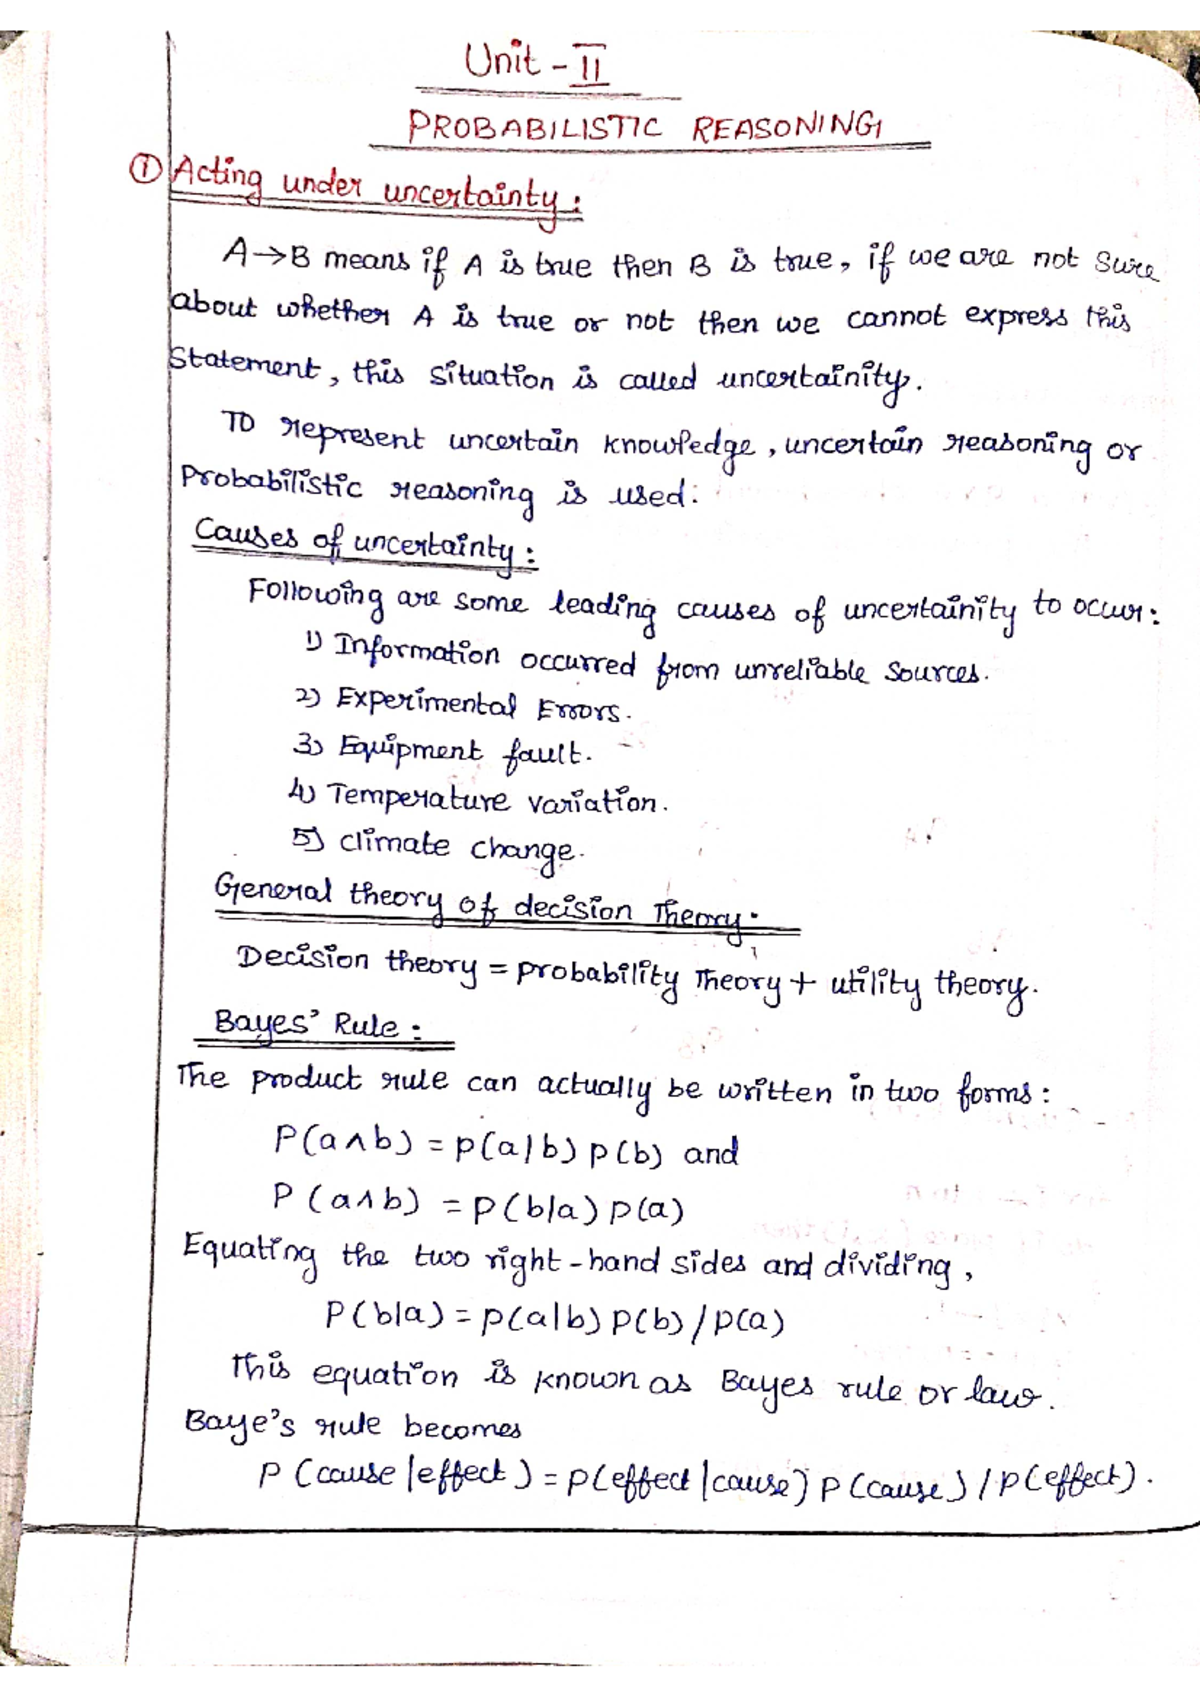 Unit - II
PROBABILISTIC REASONING
① Acting under uncertainty:
A→B means if A is true then B is true, if we are not sure
about whether A is true or not then we cannot express this
statement, this situation is called uncertainity.
To represent uncertain knowledge, uncertain reasoning or
Probabilistic reasoning is used:
Causes of uncertainty:
Following are some leading causes of uncertainity to occur:
1) Information occurred from unreliable sources.
2) Experimental Errors.
3) Equipment fault.
4) Temperature variation.
5) climate change.
General theory of decision Theory:
Decision theory = probability Theory + utility theory.
Bayes' Rule:
The product rule can actually be written in two forms:
P(a∧b) = p(a|b) p(b) and
P(a∧b) = p(b|a) p(a)
Equating the two right-hand sides and dividing,
P(b|a) = p(a|b) p(b) / p(a)
This equation is known as Bayes rule or law.
Baye's rule becomes
P(cause|effect) = p(effect|cause) p(cause) / p(effect).